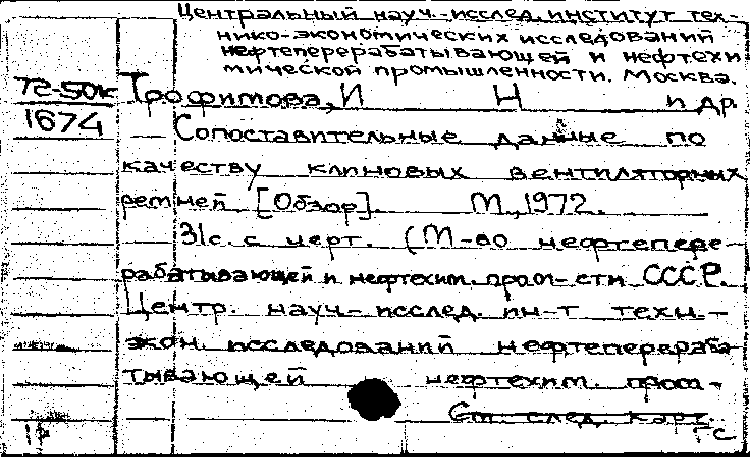 Центральный науч.-исслед. институт тех-
нико-экономических исследований
нефтеперерабатывающей и нефтехи
мической промышленности. Москва.
72-50к
Трофимова, И Н и др.
1674
Сопоставительные данные по
качеству клиновых вентиляторных
ремней. [Обзор]. М., 1972.
31с. с черт. (М-во нефтепере-
рабатывающей и нефтехим. пром-сти СССР.
Центр. науч-исслед. ин-т техн.-
экон. исследований нефтеперераба-
тывающей нефтехим. пром-
См. след. карт.
ГС